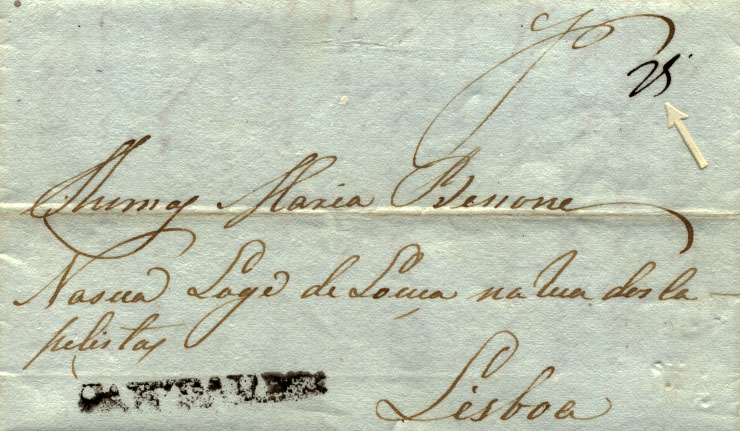 25
Maria Bessone
Na sua Loge de Louça na Rua dos Ca-
pelistas
Lisboa